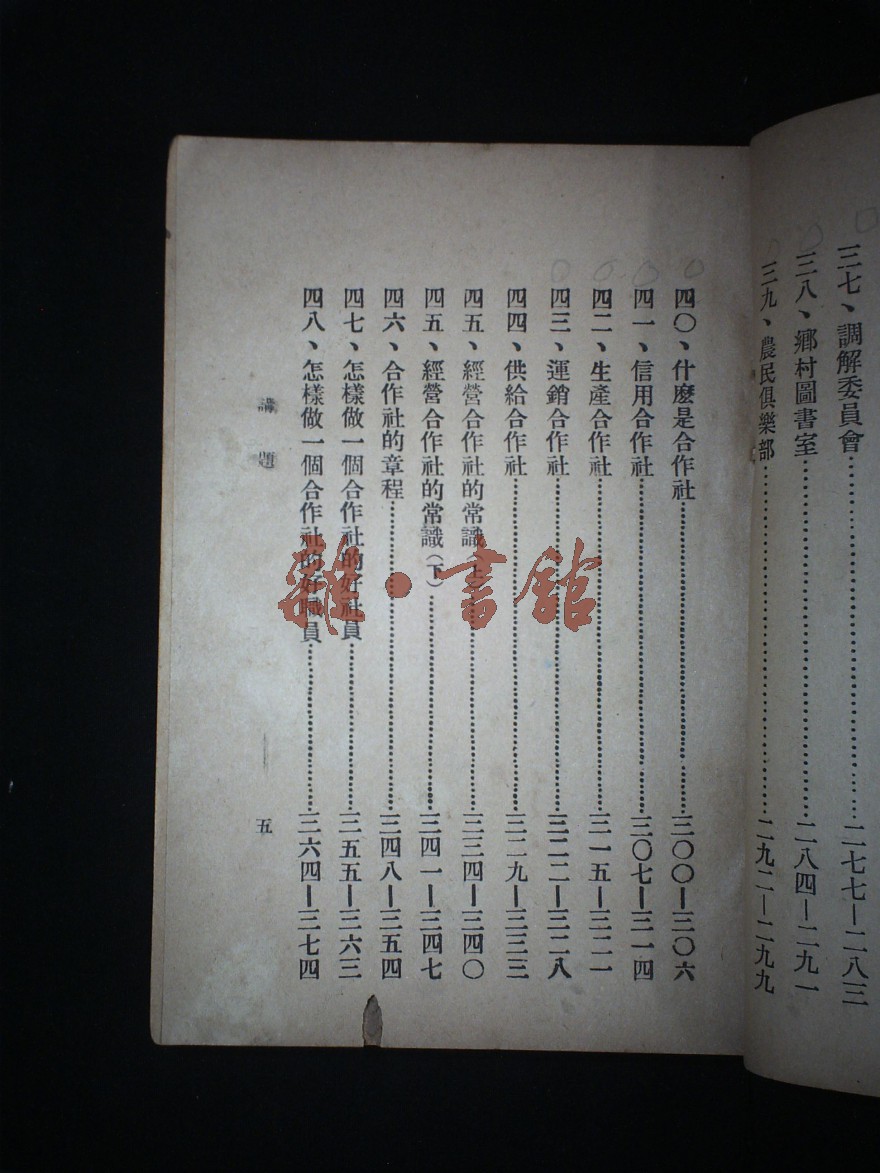 三七、調解委員會……二七七—二八三
三八、鄉村圖書室……二八四—二九一
三九、農民俱樂部……二九二—二九九
四〇、什麼是合作社……三〇〇—三〇六
四一、信用合作社……三〇七—三一四
四二、生產合作社……三一五—三二一
四三、運銷合作社……三二二—三二八
四四、供給合作社……三二九—三三三
四五、經營合作社的常識(上)……三三四—三四〇
四五、經營合作社的常識(下)……三四一—三四七
四六、合作社的章程……三四八—三五四
四七、怎樣做一個合作社的好社員……三五五—三六三
四八、怎樣做一個合作社的好職員……三六四—三七四
講題
五
雜·書館